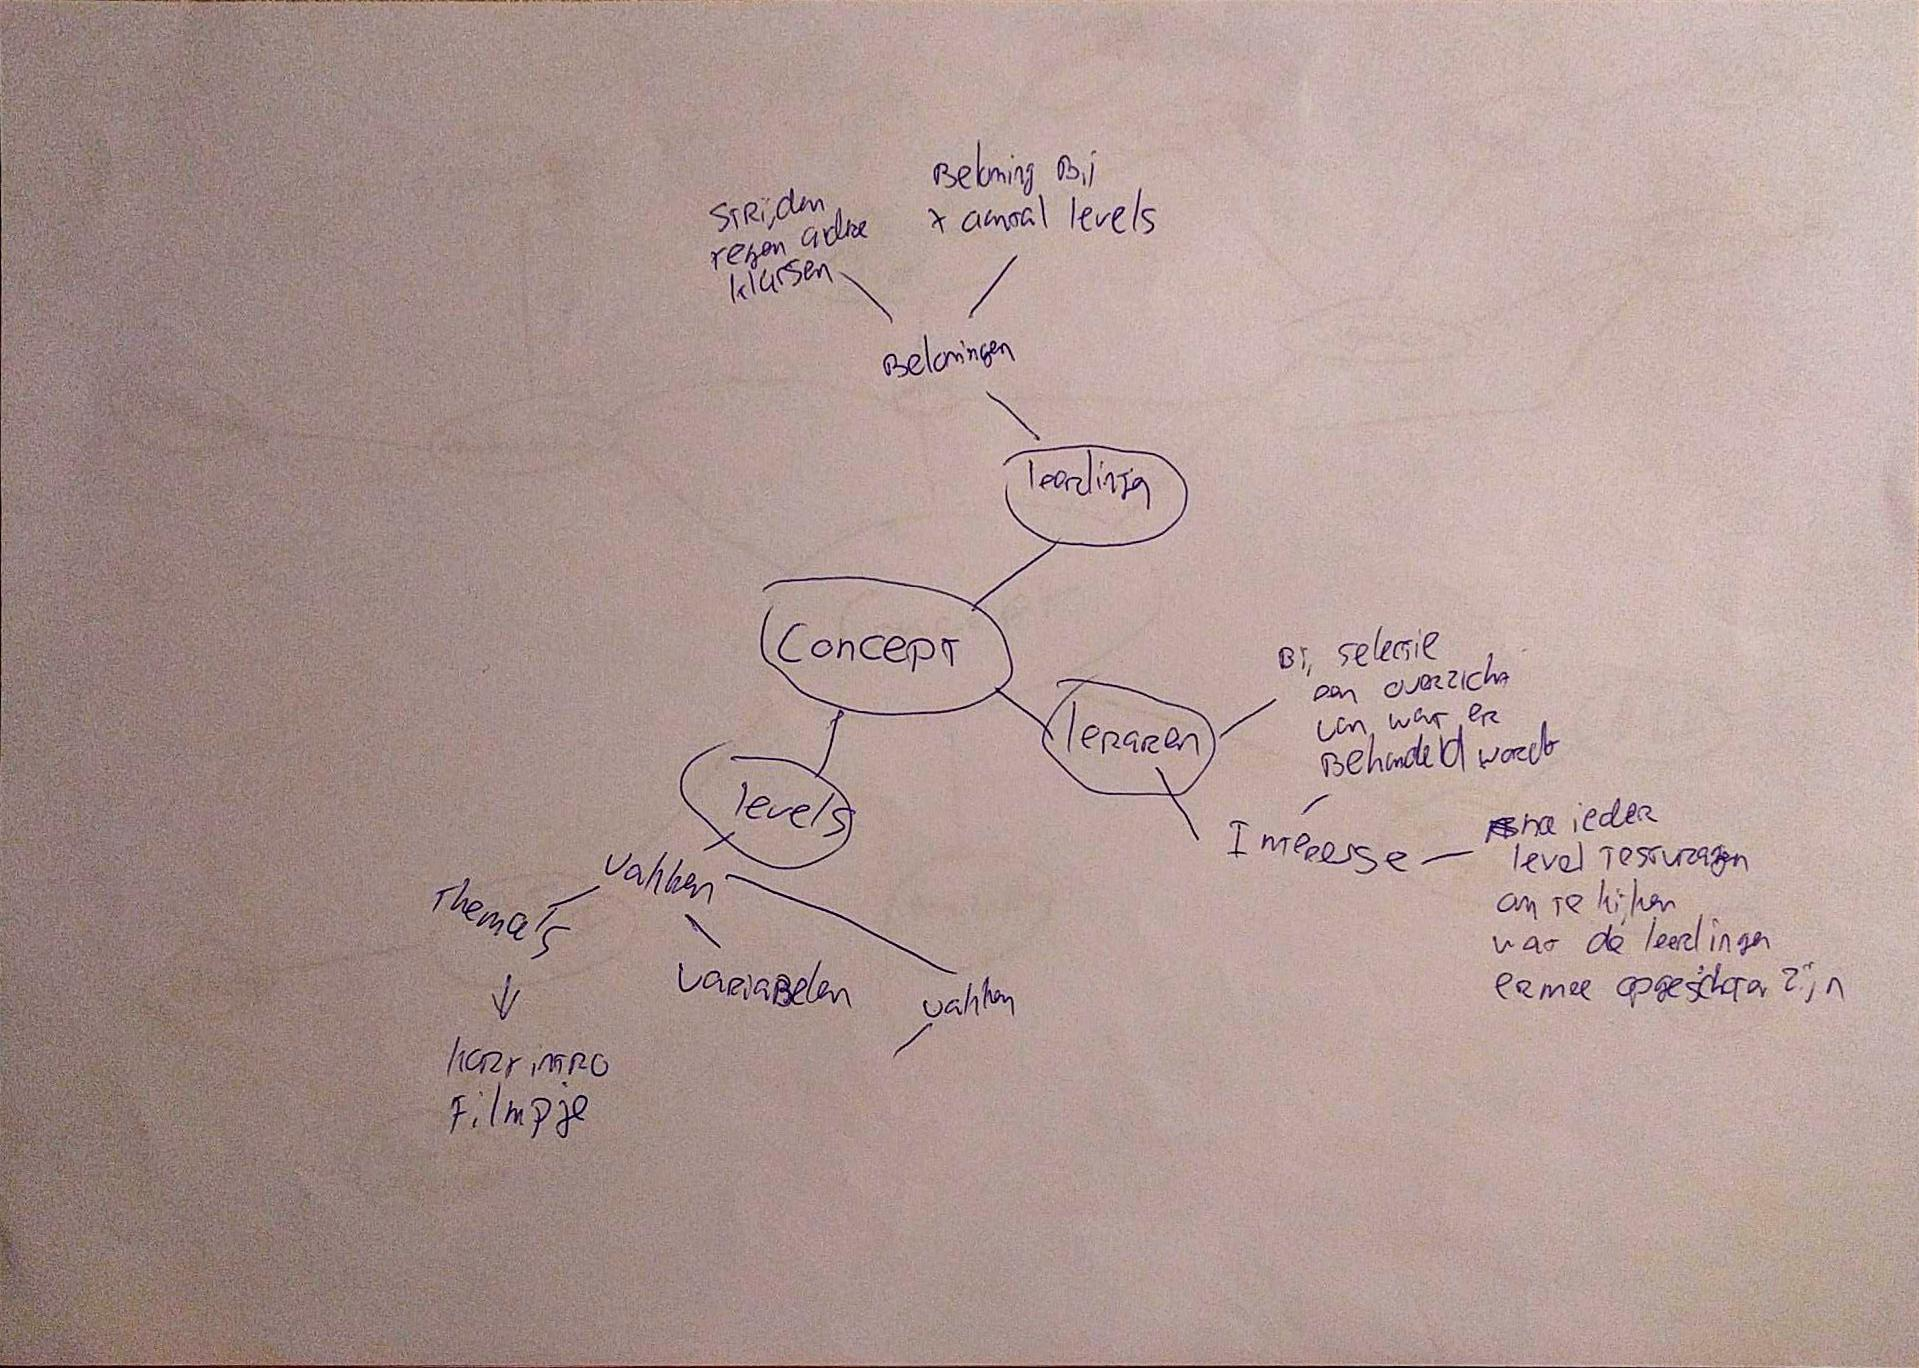 Beloning Bij
x aantal levels
STRijden
tegen andere
klassen
Beloningen
leerlingen
Concept
leraren
Bij selectie
een overzicht
van wat er
Behandeld wordt
Interesse
na ieder
level testvragen
om te kijken
wat de leerlingen
ermee opgeschoten zijn
levels
vakken
Thema's
variabelen
vakken
kort intro
Filmpje